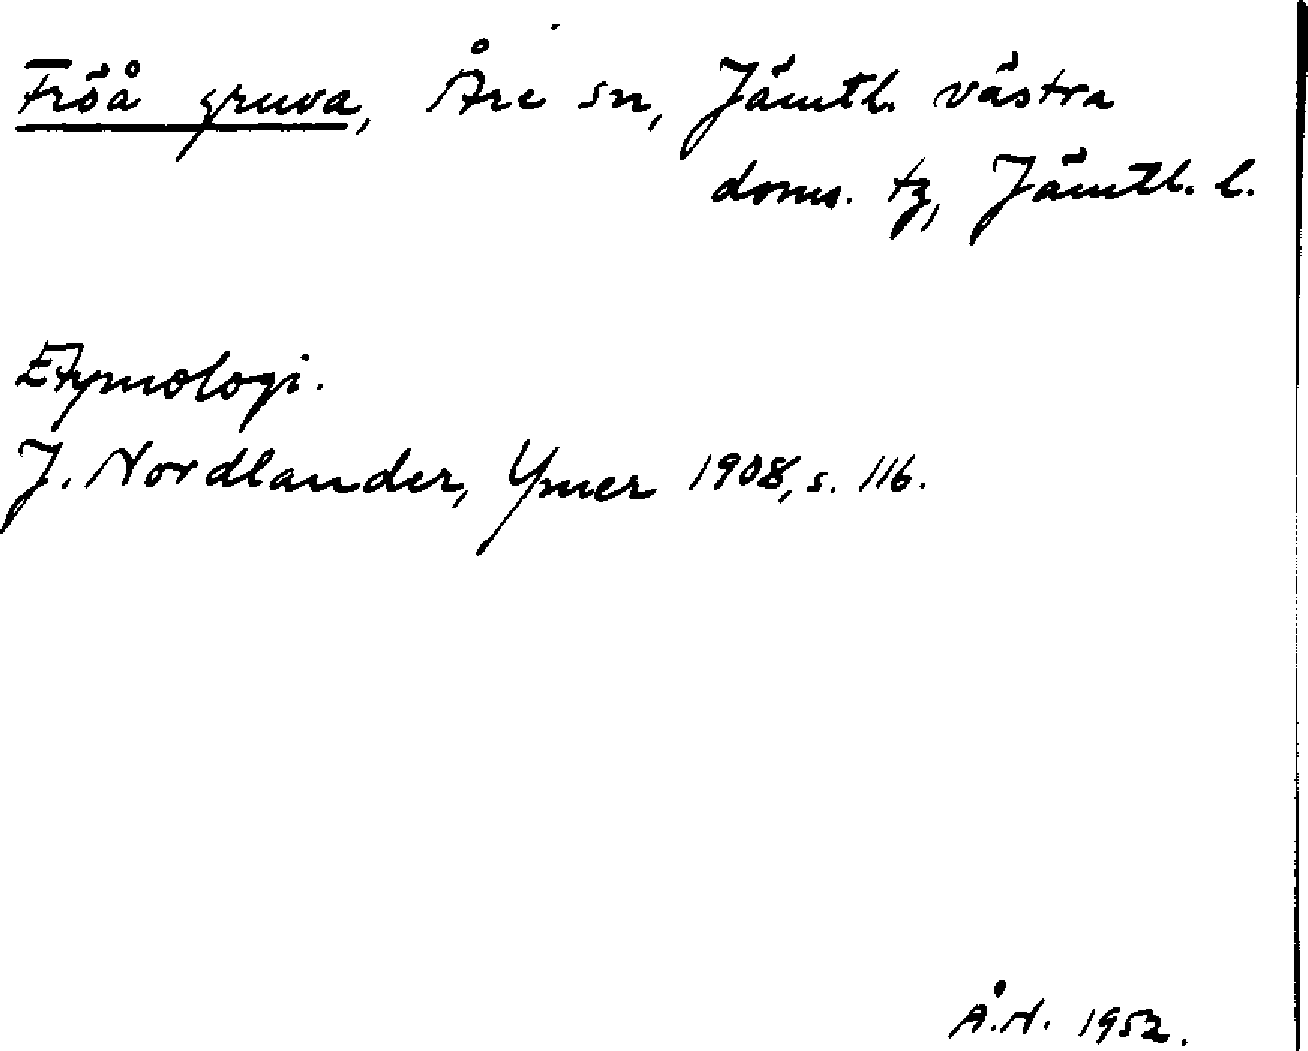 Fröå gruva, Åre sn, Jämtl. västra
doms. tg, Jämtl. l.
Etymologi.
J. Nordlander, Ymer 1908, s. 116.
Å.N. 1952.